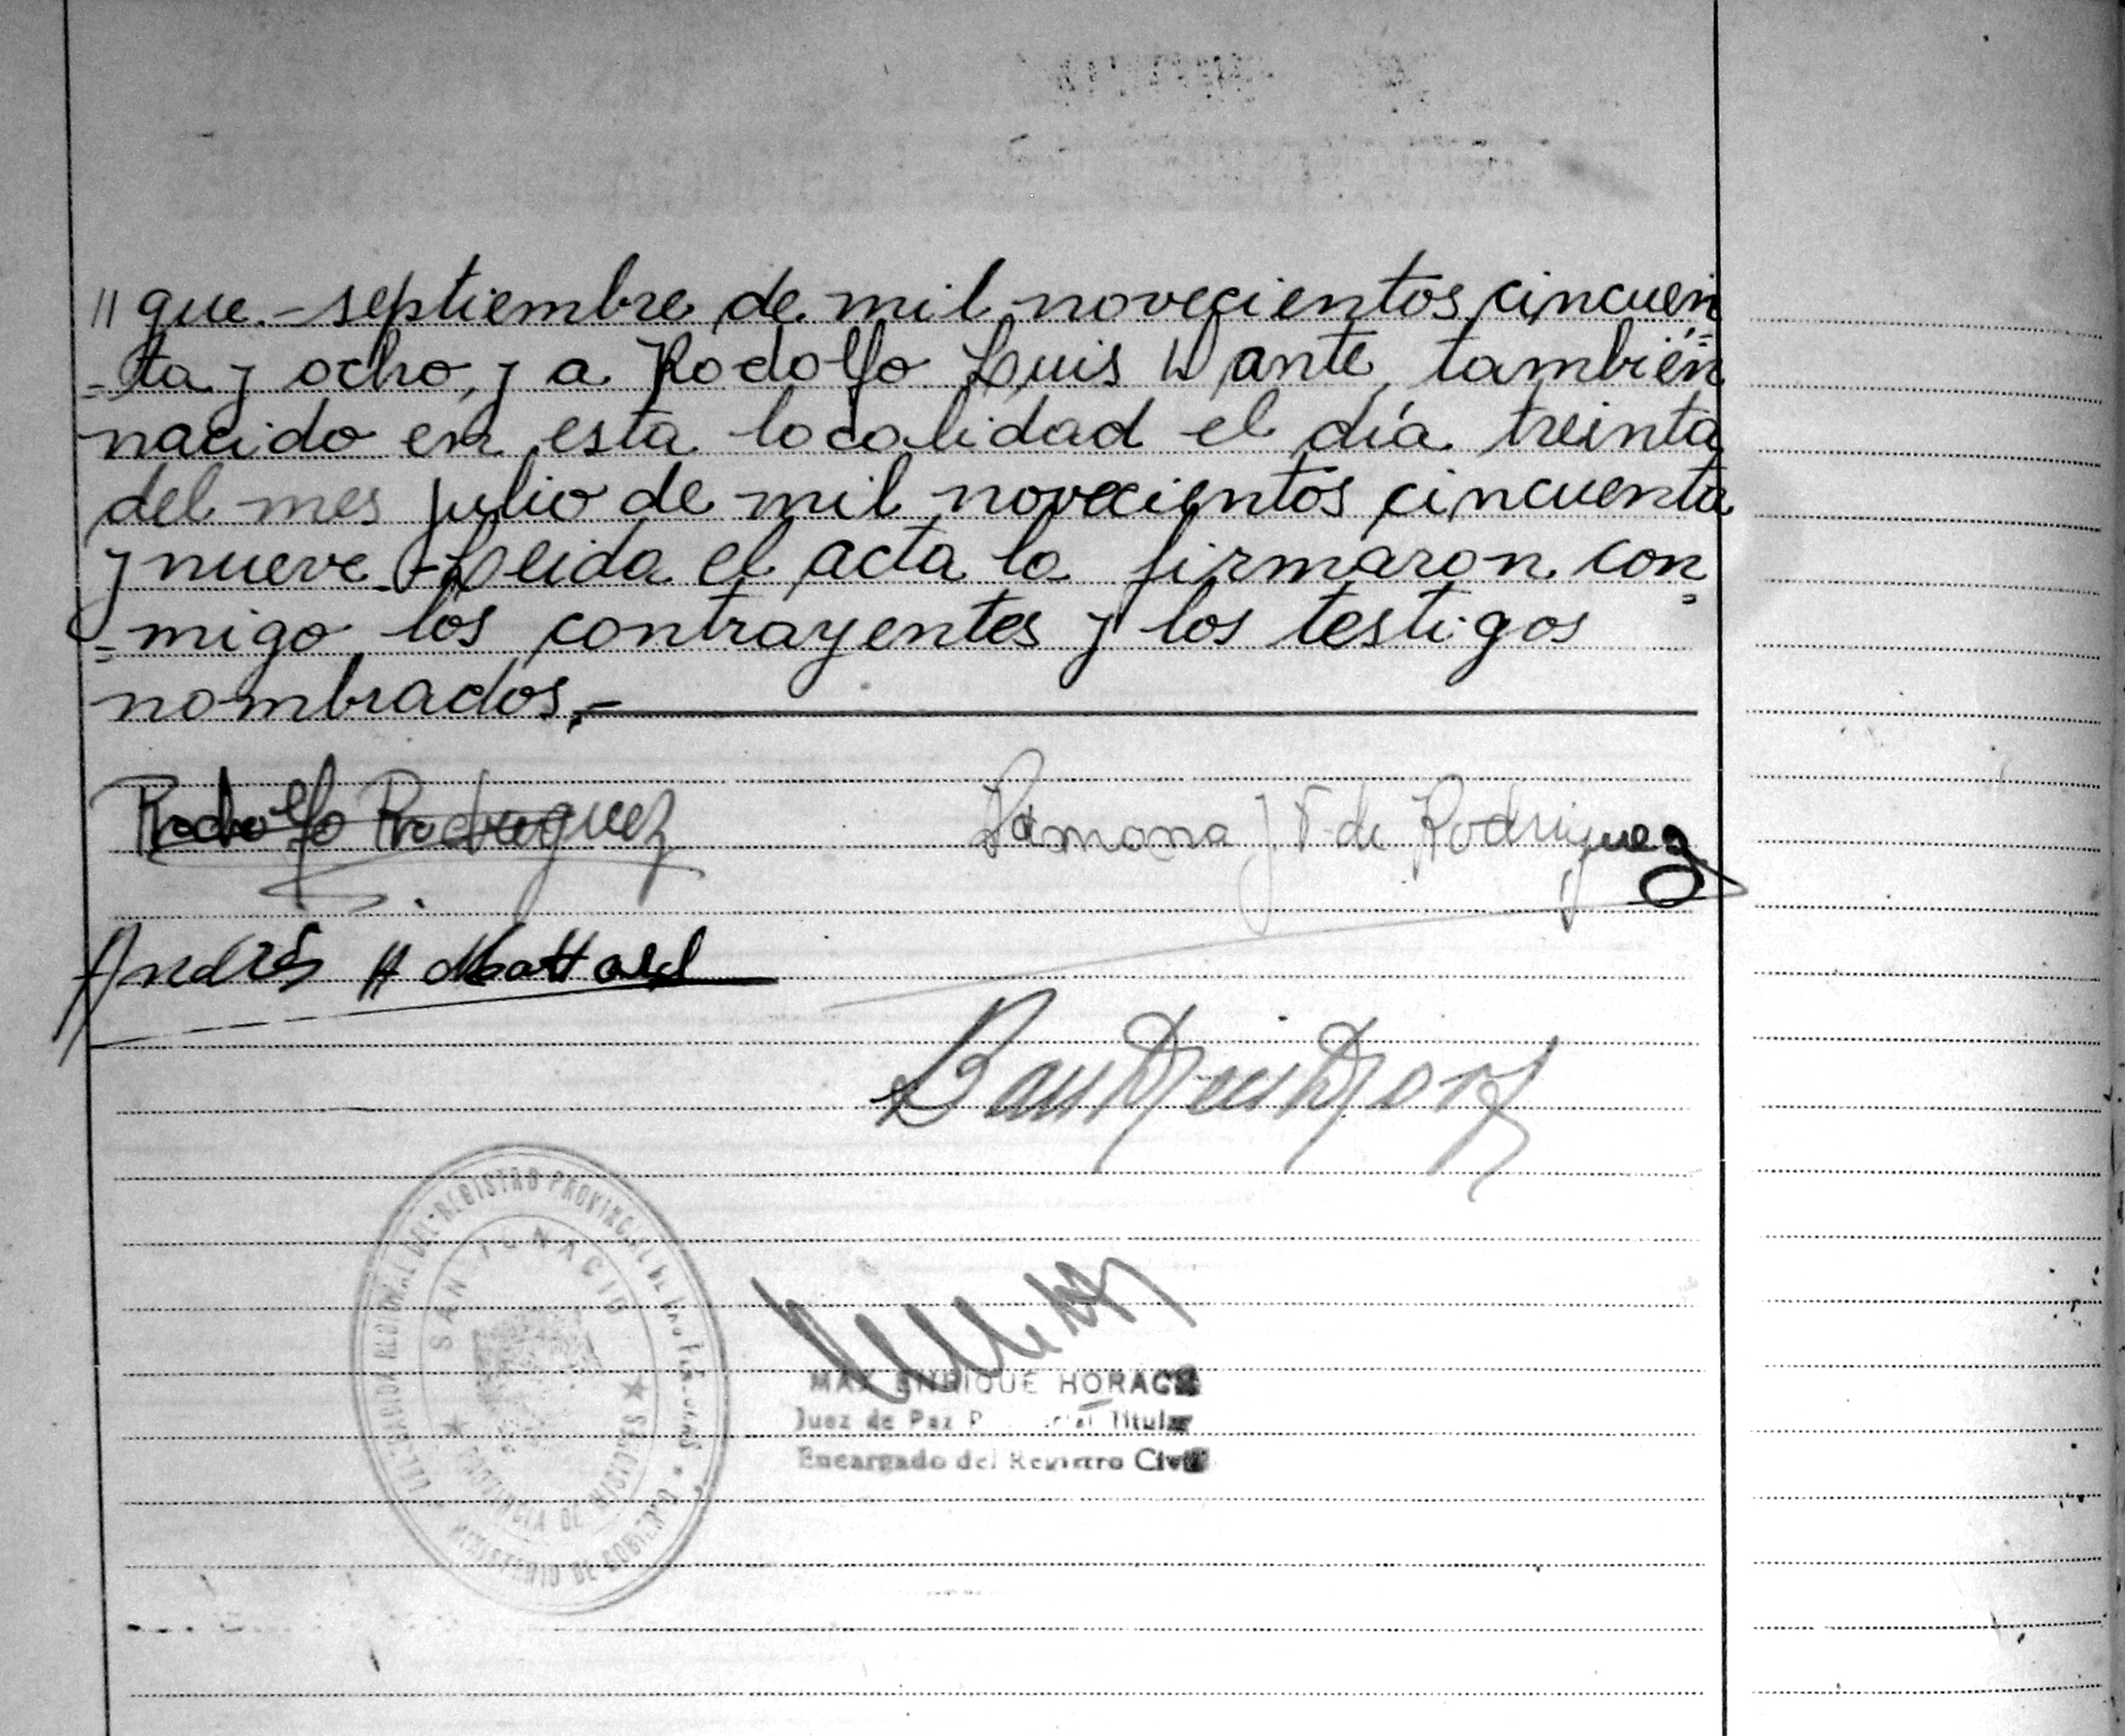 // que.- septiembre de mil novecientos cincuen=
=ta y ocho, y a Rodolfo Luis Dante, también
nacido en esta localidad el día treinta
del mes julio de mil novecientos cincuenta
y nueve.- Leida el acta la firmaron con=
=migo los contrayentes y los testigos
nombrados.-
Rodolfo Rodriguez
Ramona J F de Rodriguez
Andrés H
REGISTRO PROVINCIAL DE
SAN IGNACIO
PROVINCIA DE MISIONES
MINISTERIO DE GOBIERNO
MAX ENRIQUE HORACH
Juez de Paz Titular
Encargado del Registro Civil